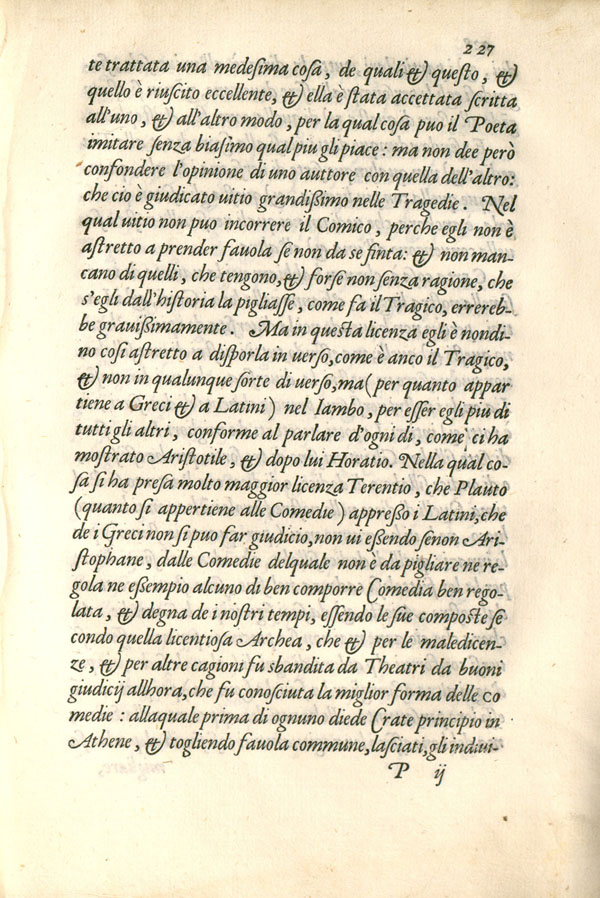 227
te trattata una medesima cosa, de quali & questo, &
quello è riuscito eccellente, & ella è stata accettata scritta
all'uno, & all'altro modo, per la qual cosa puo il Poeta
imitare senza biasimo qual piu gli piace: ma non dee però
confondere l'opinione di uno auttore con quella dell'altro:
che cio è giudicato uitio grandissimo nelle Tragedie. Nel
qual uitio non puo incorrere il Comico, perche egli non è
astretto a prender fauola se non da se finta: & non man-
cano di quelli, che tengono, & forse non senza ragione, che
s'egli dall'historia la pigliasse, come fa il Tragico, errereb-
be grauissimamente. Ma in questa licenza egli è nondi
no cosi astretto a disporla in uerso, come è anco il Tragico,
& non in qualunque sorte di uerso, ma (per quanto appar
tiene a Greci & a Latini) nel Iambo, per esser egli piu di
tutti gli altri, conforme al parlare d'ogni di, come ci ha
mostrato Aristotile, & dopo lui Horatio. Nella qual co-
sa si ha presa molto maggior licenza Terentio, che Plauto
(quanto si appertiene alle Comedie) appresso i Latini, che
de i Greci non si puo far giudicio, non ui essendo senon Ari-
stophane, dalle Comedie delquale non è da pigliare ne re-
gola ne essempio alcuno di ben comporre Comedia ben rego-
lata, & degna de i nostri tempi, essendo le sue composte se
condo quella licentiosa Archea, che & per le maledicen-
ze, & per altre cagioni fu sbandita da Theatri da buoni
giudicij allhora, che fu conosciuta la miglior forma delle co
medie: allaquale prima di ognuno diede Crate principio in
Athene, & togliendo fauola commune, lasciati, gli indiui-
P ij